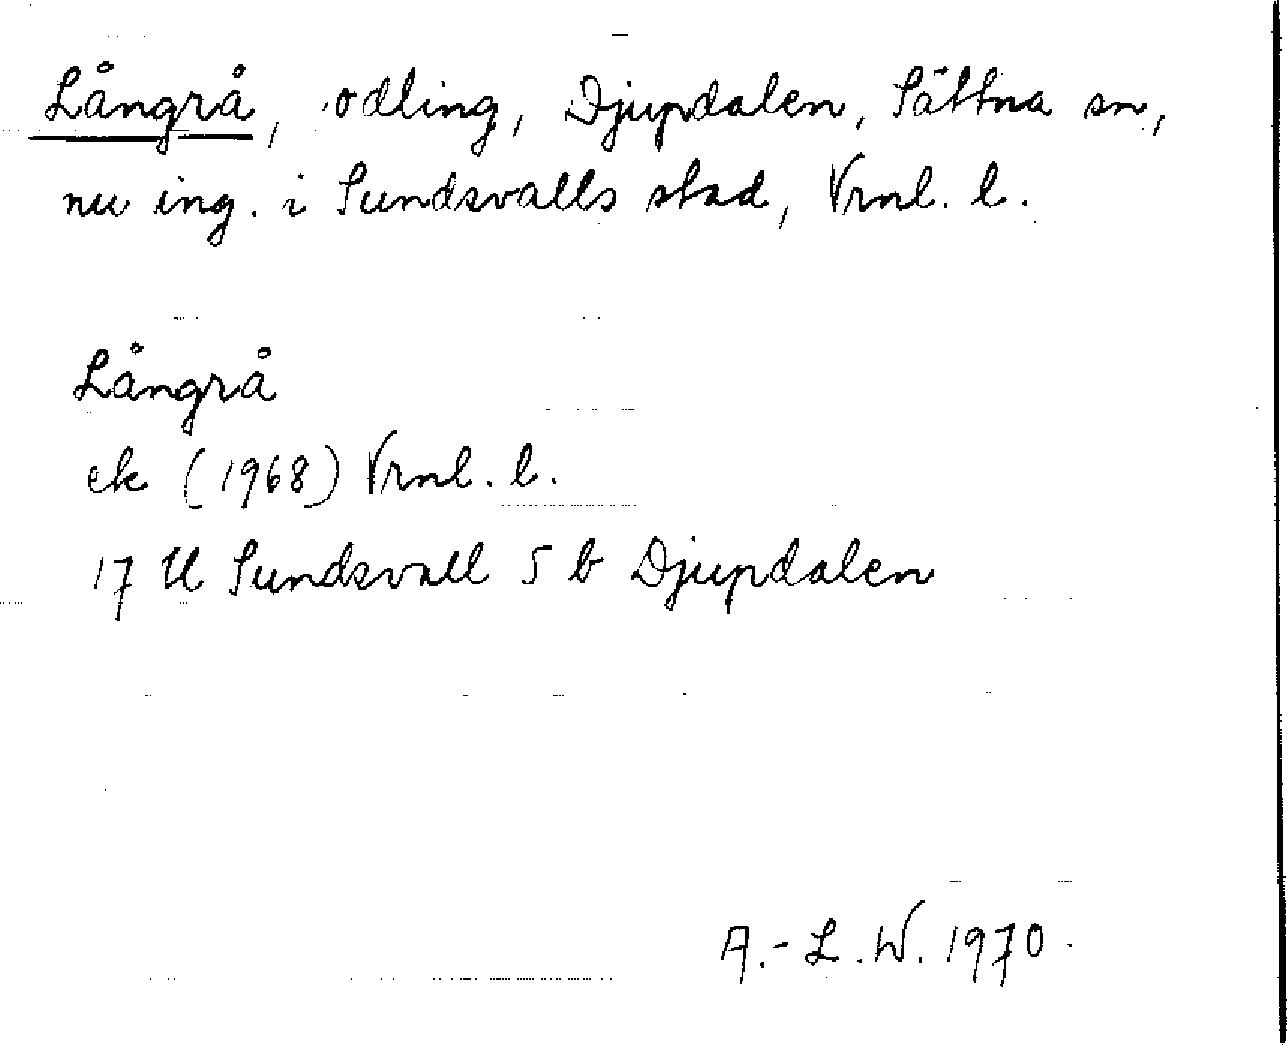 Långrå, odling, Djupdalen, Sättna sn,
nu ing. i Sundsvalls stad, Vrnl. l.
Långrå
ek (1968) Vrnl. l.
17 H Sundsvall 5 b Djupdalen
A.-L.W. 1970.